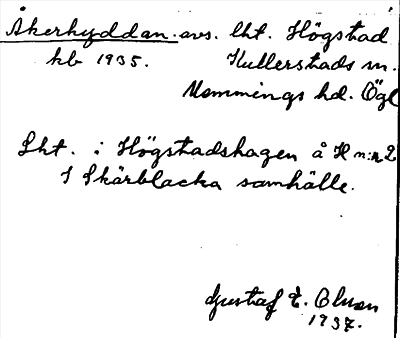 Åkerhyddan. avs. lht. Högstad
kb 1935. Kullerstads sn.
Memmings hd. Ögl
Lht. i Högstadshagen å H m:r 2
I Skärblacka samhälle.
Gustaf E. Olson
1937.